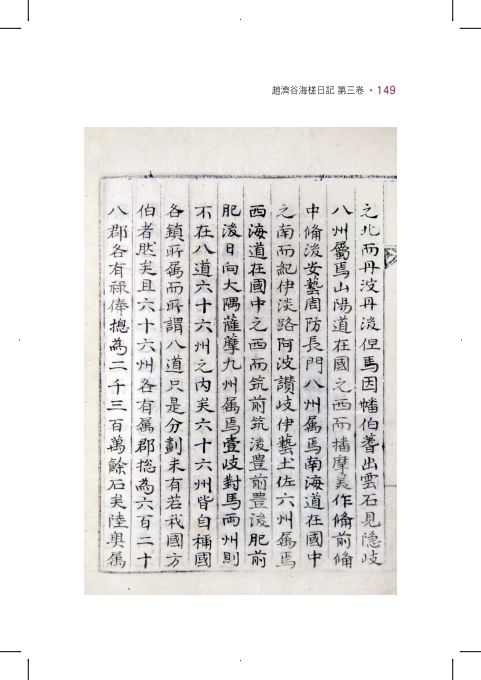 趙濟谷海槎日記 第三卷 · 149
之北而丹波丹後但馬因幡伯蓍出雲石見隐岐
八州屬焉山陽道在國之西而播摩美作俻前俻
中俻後安藝周防長門八州屬焉南海道在國中
之南而紀伊淡路阿波讃岐伊藝土佐六州屬焉
西海道在國中之西而筑前筑後豊前豊後肥前
肥後日向大隅薩摩九州屬焉壹歧對馬両州則
不在八道六十六州之内矣六十六州皆自稱國
各鎮所属而所謂八道只是分劃未有若我國方
伯者然矣且六十六州各有属郡揔為六百二十
八郡各有祿俸揔為二千三百萬餘石矣陸奥属